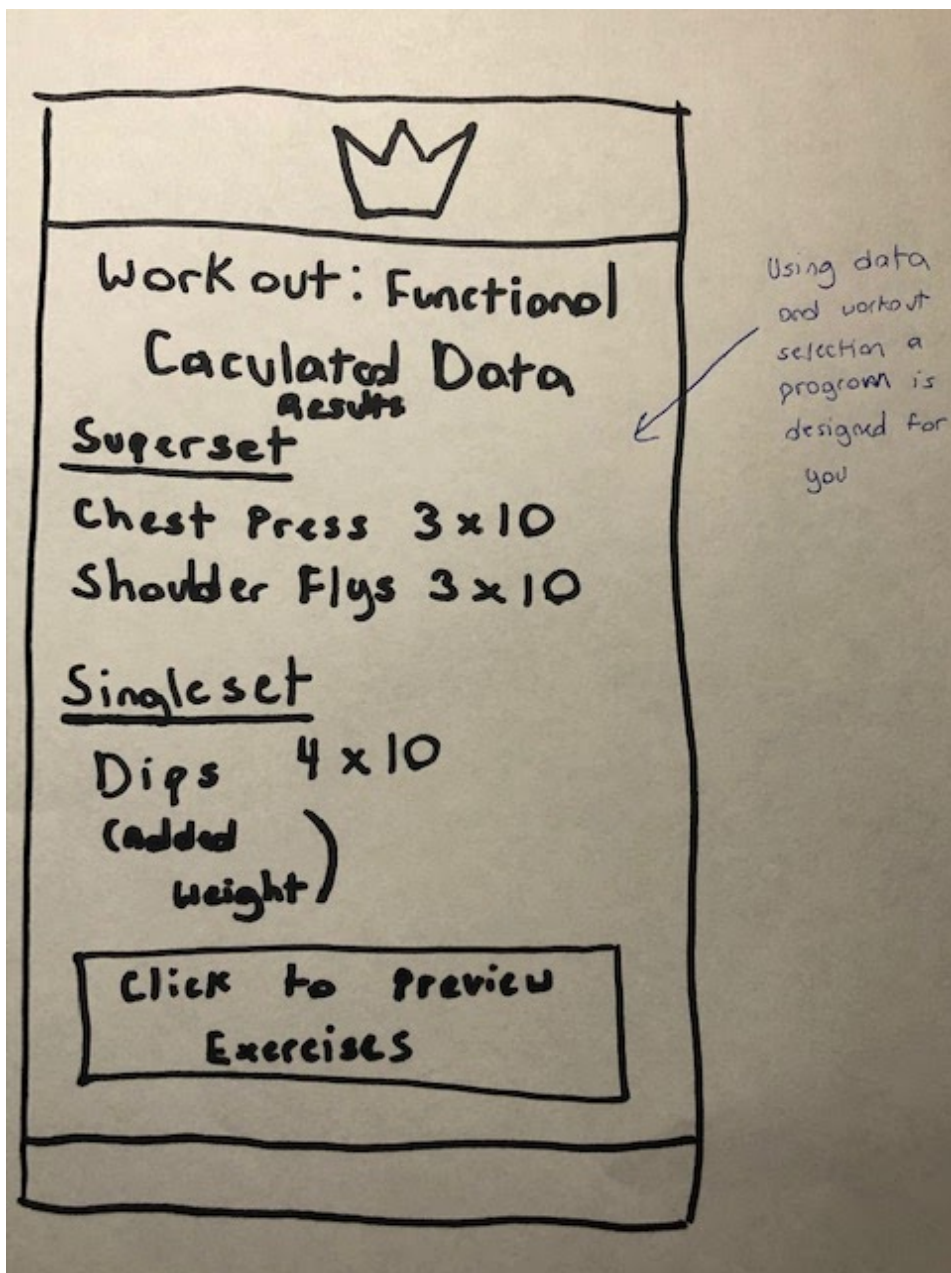 Workout: Functional
Caculated Data
Results
Superset
Chest Press 3x10
Shoulder Flys 3x10
Singleset
Dips 4x10
(Added
Weight)
Click to Preview
Exercises
Using data
and workout
selection a
program is
designed for
you